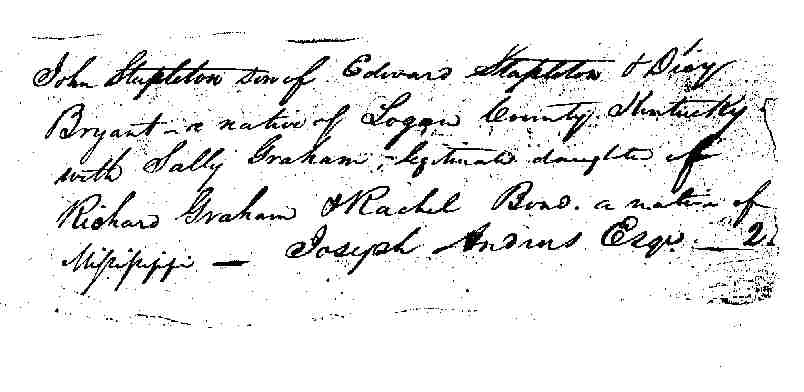 John Stapleton son of Edward Stapleton & Dicy
Bryant - a native of Logan County Kentucky
with Sally Graham, - legitimate daughter of
Richard Graham & Rachel Bond. a native of
Mississippi — Joseph Andrus Esqr — 2.